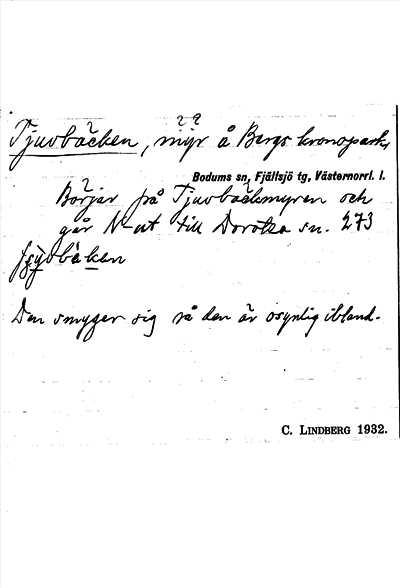 Tjuvbäcken, myr å Bergs kronopark,
Bodums sn, Fjällsjö tg, Västernorrl. l.
Börjar på Tjuvbäckmyren och
går N-ut till Dorotea sn. 273
Den smyger sig så den är osynlig ibland.
C. LINDBERG 1932.